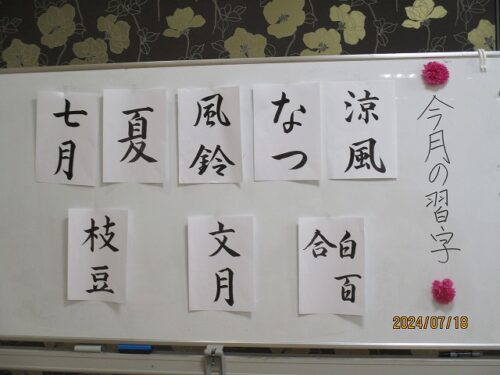 今月の習字
涼風
なつ
風鈴
夏
七月
白百
合
文月
枝豆
2024/07/18